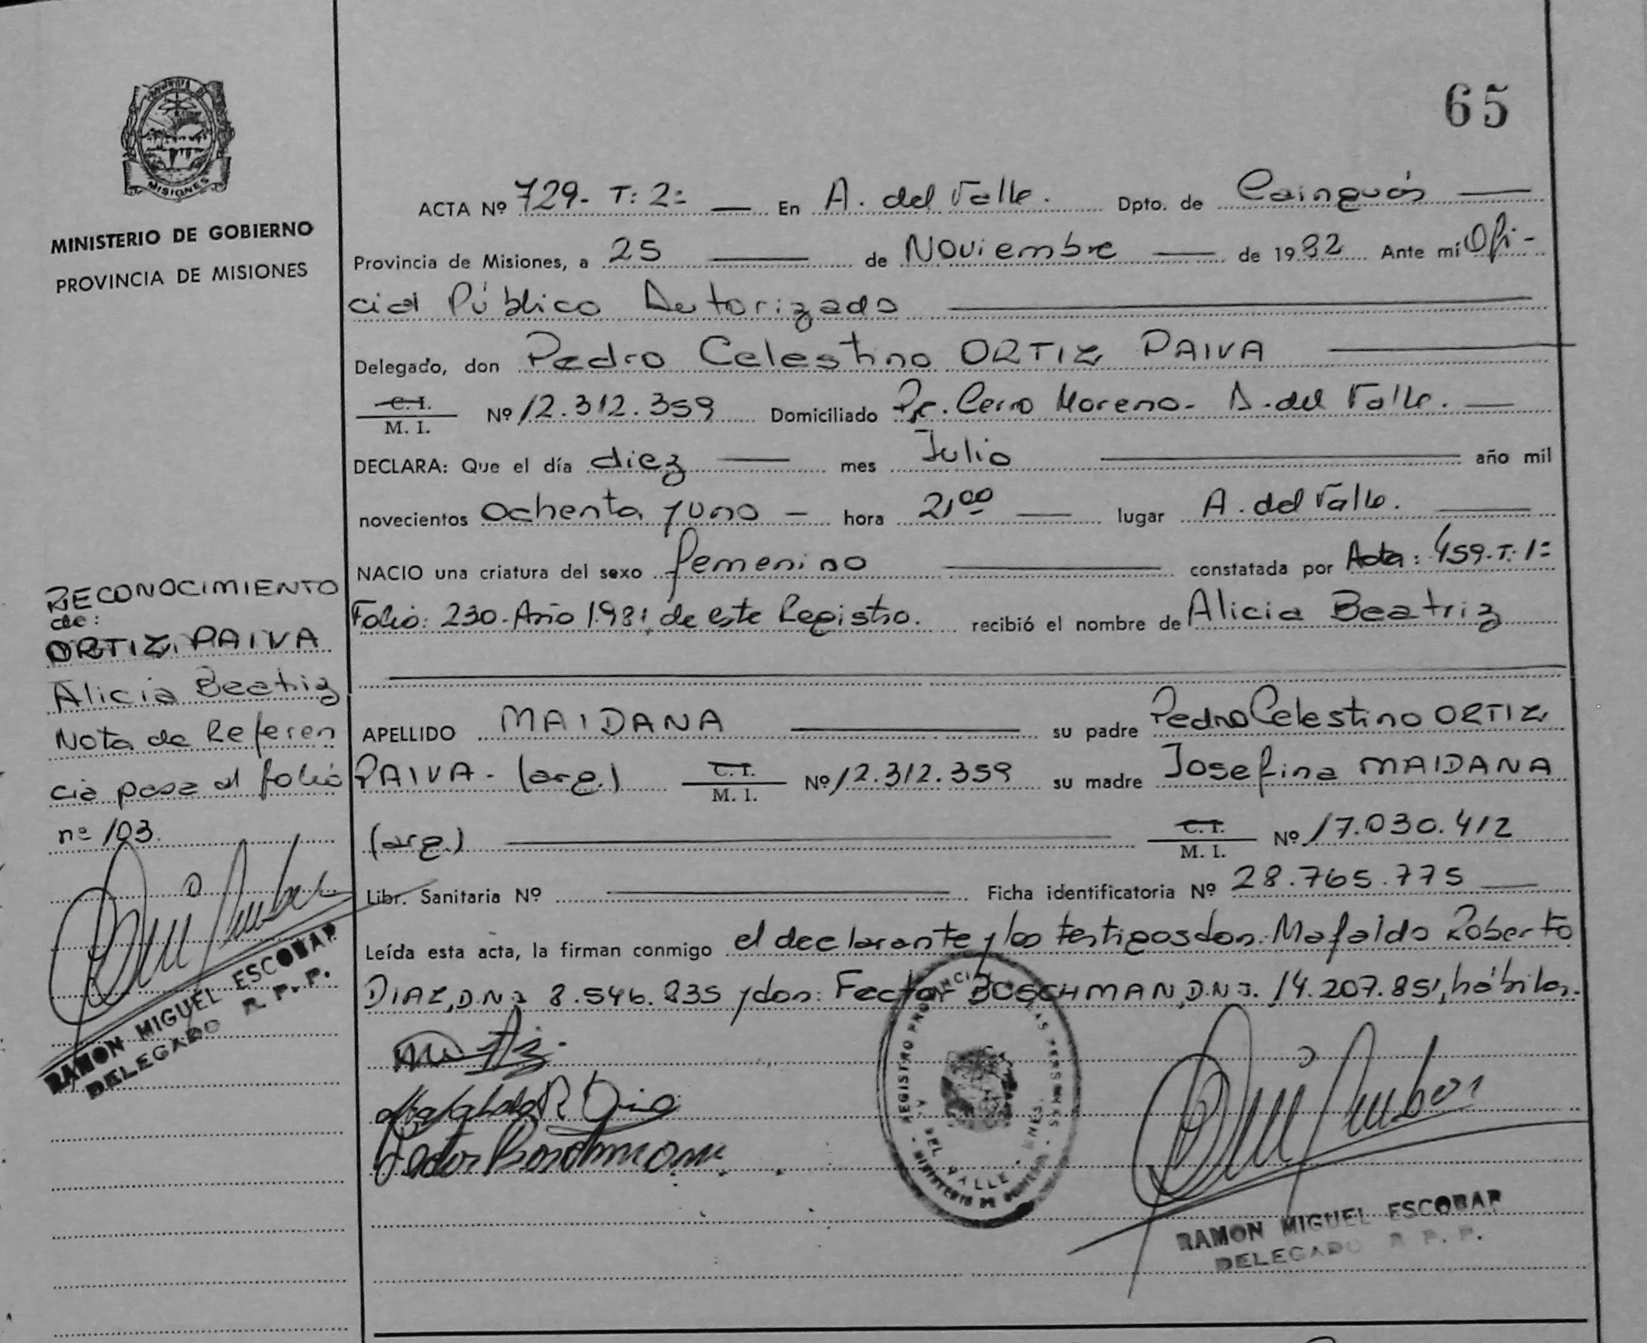 65
MISIONES
MINISTERIO DE GOBIERNO
PROVINCIA DE MISIONES
RECONOCIMIENTO
de:
ORTIZ, PAIVA
Alicia Beatriz
Nota de Referen
cia pasa al folio
nº 103.
RAMON MIGUEL ESCOBAR
DELEGADO R. P. P.
ACTA Nº 729- T: 2º — En A. del Valle. Dpto. de Cainguás —
Provincia de Misiones, a 25 — de Noviembre — de 1982 Ante mí Ofi-
cial Público Autorizado —
Delegado, don Pedro Celestino ORTIZ PAIVA —
C. I.
M. I. Nº 12.312.359 Domiciliado Pje. Cerro Moreno- A. del Valle. —
DECLARA: Que el día diez — mes Julio — año mil
novecientos ochenta y uno — hora 21,00 — lugar A. del Valle. —
NACIO una criatura del sexo femenino — constatada por Acta: 459-T. 1º
Folio: 230. Año 1981, de este Registro. recibió el nombre de Alicia Beatriz
APELLIDO MAIDANA — su padre Pedro Celestino ORTIZ
PAIVA- (arg.) C. I.
M. I. Nº 12.312.359 su madre Josefina MAIDANA
(arg.) — C. I.
M. I. Nº 17.030.412
Libr. Sanitaria Nº — Ficha identificatoria Nº 28.765.775 —
Leída esta acta, la firman conmigo el declarante y los testigos don: Mafaldo Roberto
DIAZ, D.N.I. 8.546.835 y don: Fector BOSCHMAN, D.N.I. 14.207.851, hábiles.
REGISTRO PROVINCIAL DE LAS PERSONAS
A. DEL VALLE - MNES.
MINISTERIO DE GOBIERNO
RAMON MIGUEL ESCOBAR
DELEGADO R. P. P.